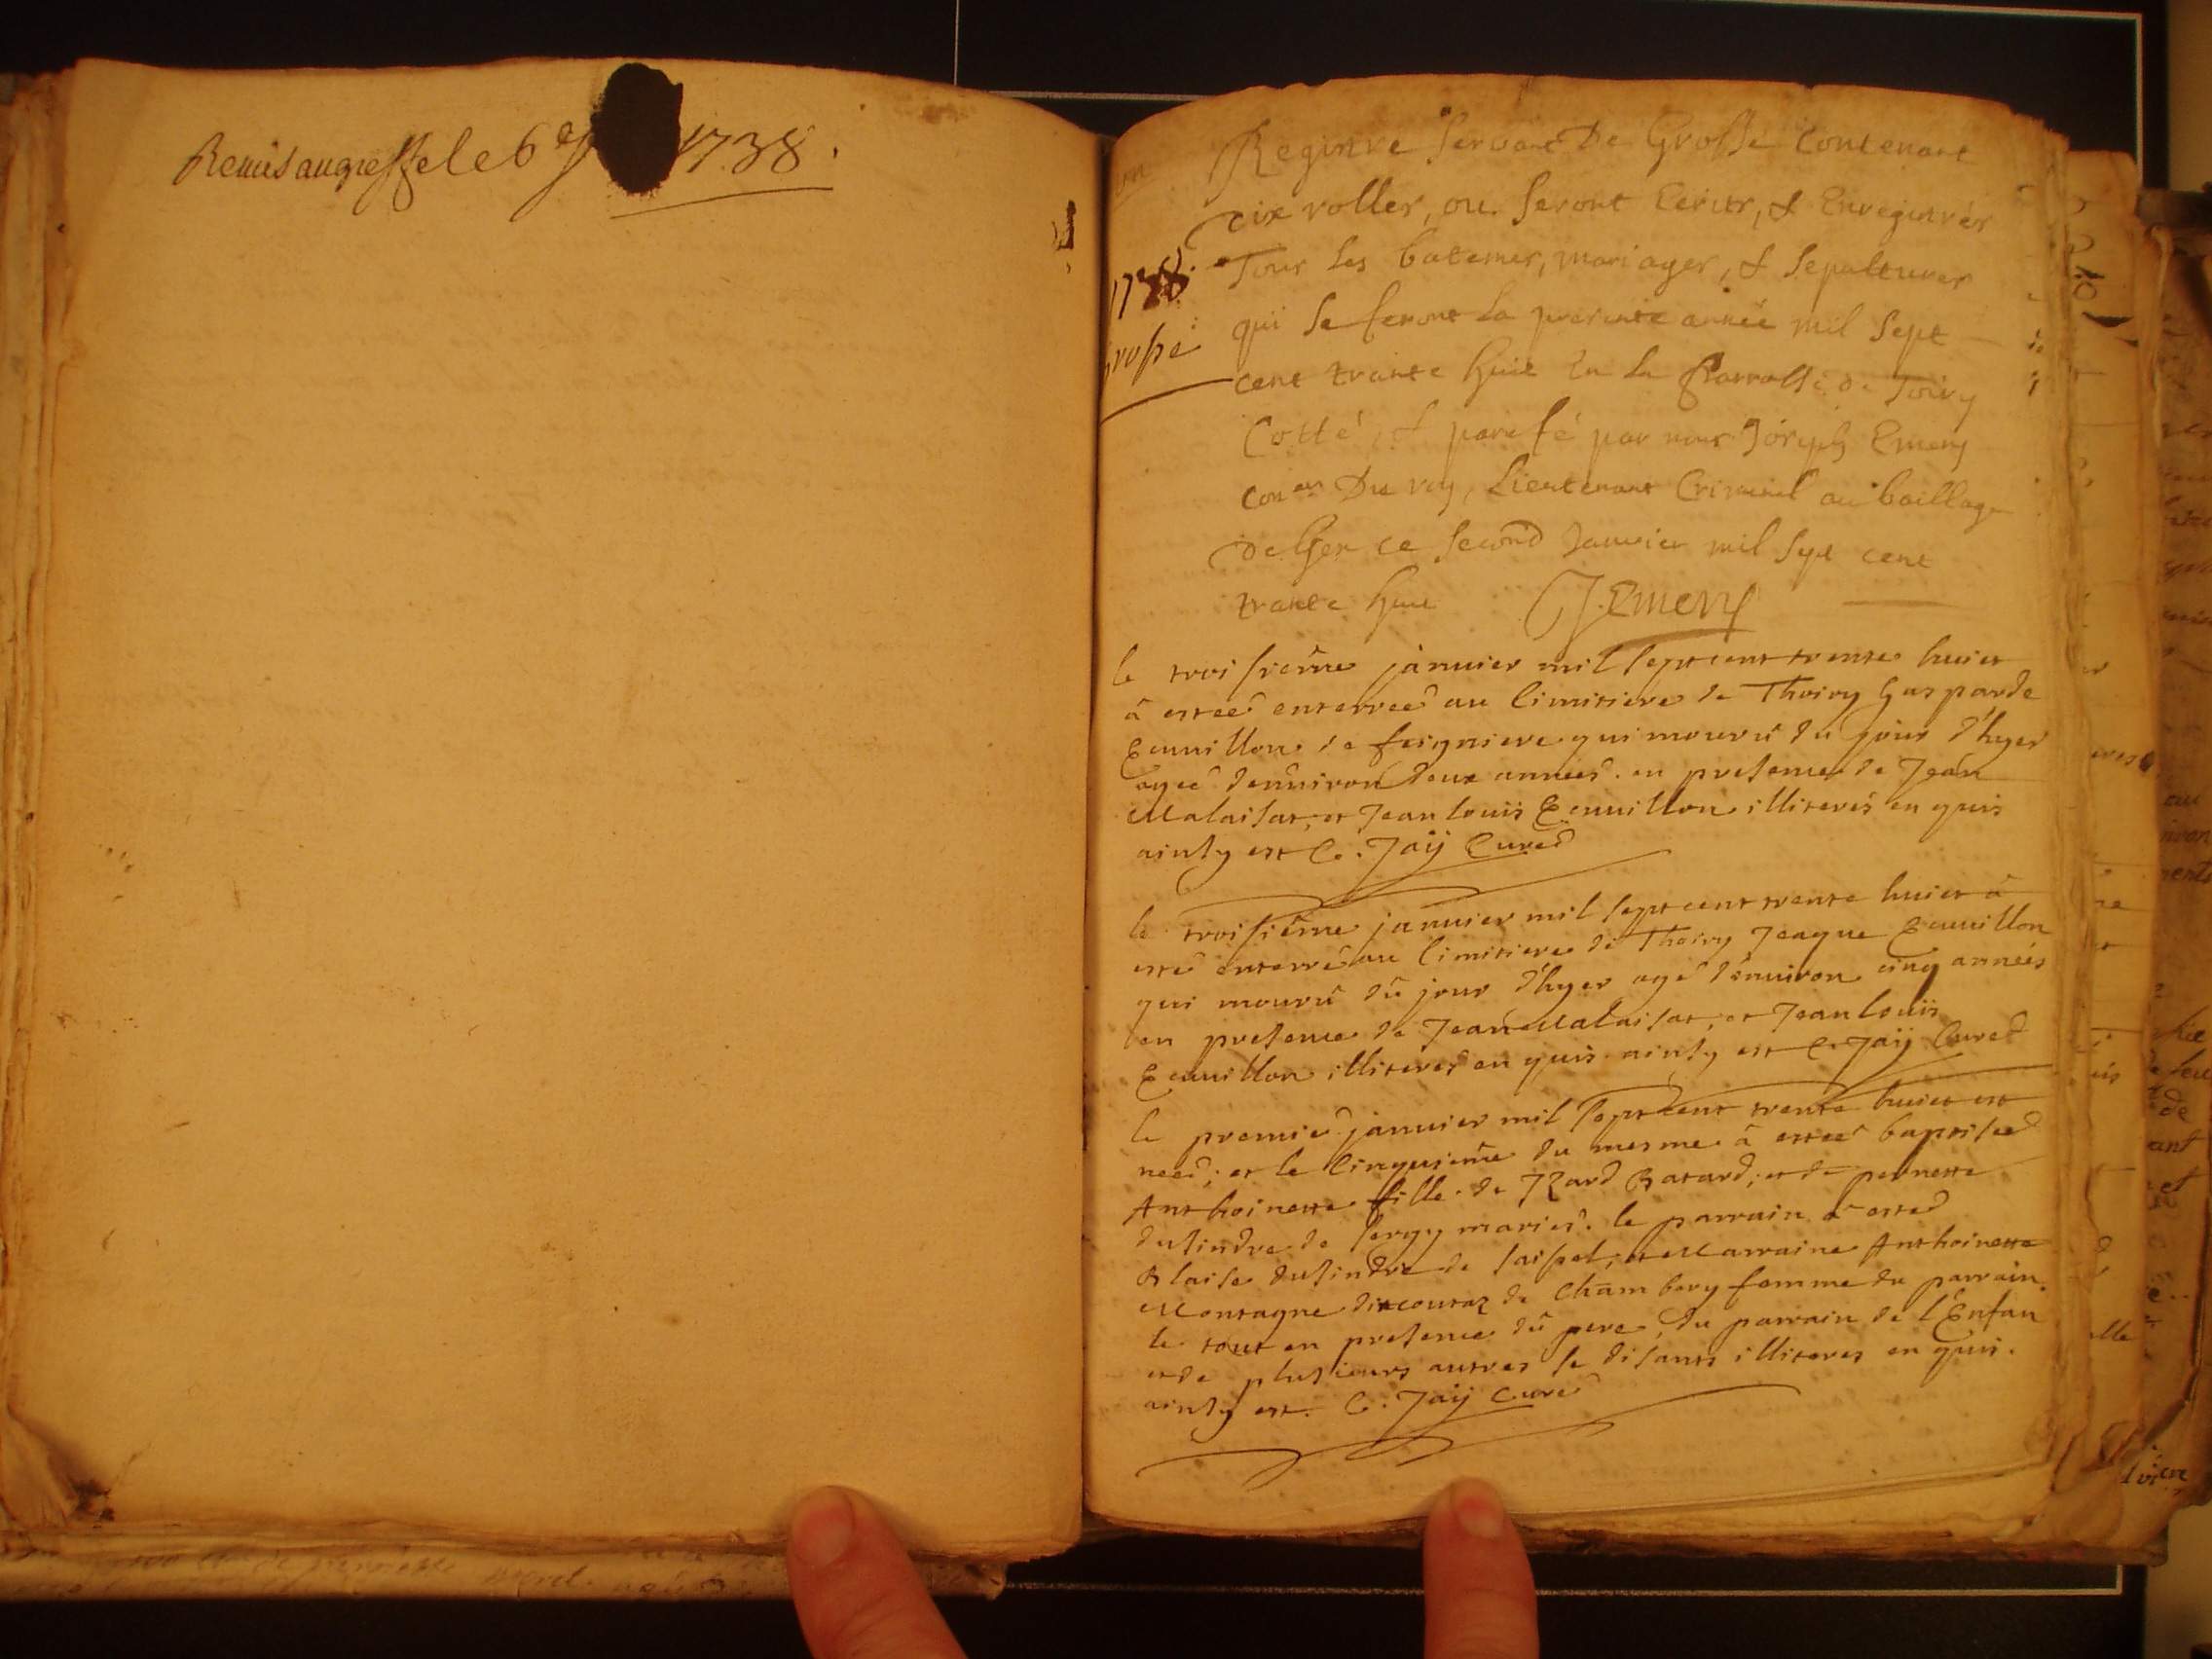 Remis au greffe le 6e 1738.
Registre servant De Grosse Contenant
dix rolles, ou seront Ecrits, & Enregistrés
Tous les batemes, mariages, & sepultures
1738.
qui se feront la presente année mil sept
grosse
cent trante huit En la Parroisse de Toiry
Cotté, & parafé par nous Joseph Emery
Coner Du roy, Lieutenant Criminel au baillage
de Gex ce second Janvier mil sept cent
trante huit J. Emery
le troisieme januier mil sept cent trente huict
â estée enterrée au Cimitiere de Thoiry Gasparde
Ecuuillon de feigniere qui mourû du jour d'hyer
agée d'enuiron deux années en presence de Jean
Malaisat, et Jean Louis Ecuuillon illiterés en quis
ainsy est C. Jaÿ Curé
le troisiême januier mil sept cent trente huict â
esté enterré au Cimitiere de Thoiry Jeaque Ecuuillon
qui mourû dû jour d'hyer agé d'enuiron cinq années
en presence de Jean Malaisat, et Jean Louis
Ecuuillon illiterés en quis ainsy est C. Jaÿ Curé
le premié januier mil sept cent trente huict est
neé; et le Cinquiême du mesme â estée baptisée
Anthoinette fille de JZard Batard; et de pernette
dusindre de sergy mariés. le parrain â esté
Blaise dusindre de saspel, et Marraine Anthoinette
Montagne de Chambery femme du parrain.
le tout en presence dû pere, du parrain de l'Enfan
et de plusieurs autres se disants illiteres en quis.
ainsy est. C. Jaÿ Curé